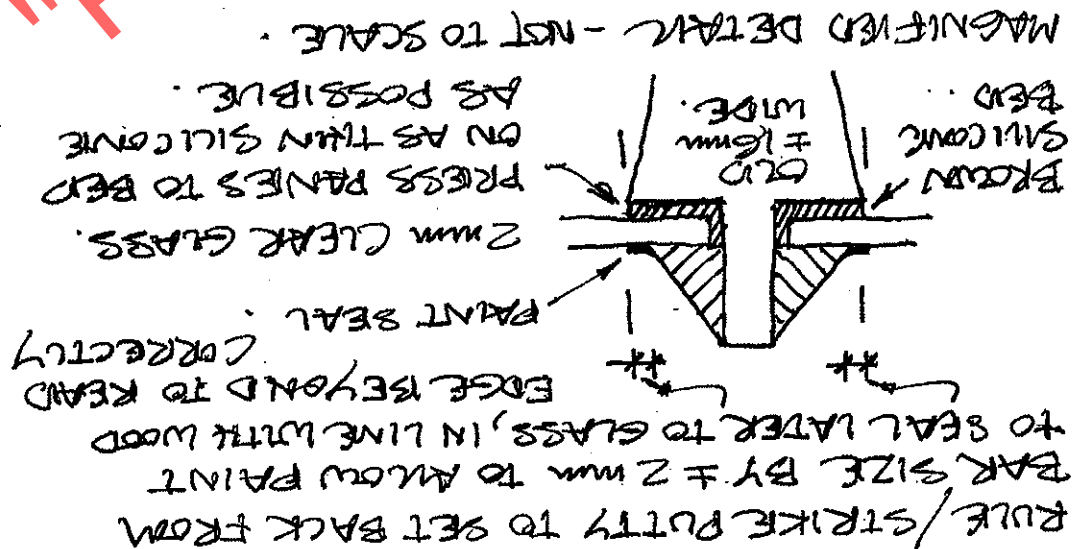 RULE/STRIKE PUTTY TO SET BACK FROM
BAR SIZE BY ± 2mm TO ALLOW PAINT
TO SEAL LATER TO GLASS, IN LINE WITH WOOD
EDGE BEYOND TO READ
CORRECTLY
PAINT SEAL.
2mm CLEAR GLASS.
PRESS PANES TO BED
ON AS THIN SILICONE
AS POSSIBLE.
BROWN
SILICONE
BED.
OLD
±16mm
WIDE.
MAGNIFIED DETAIL - NOT TO SCALE.